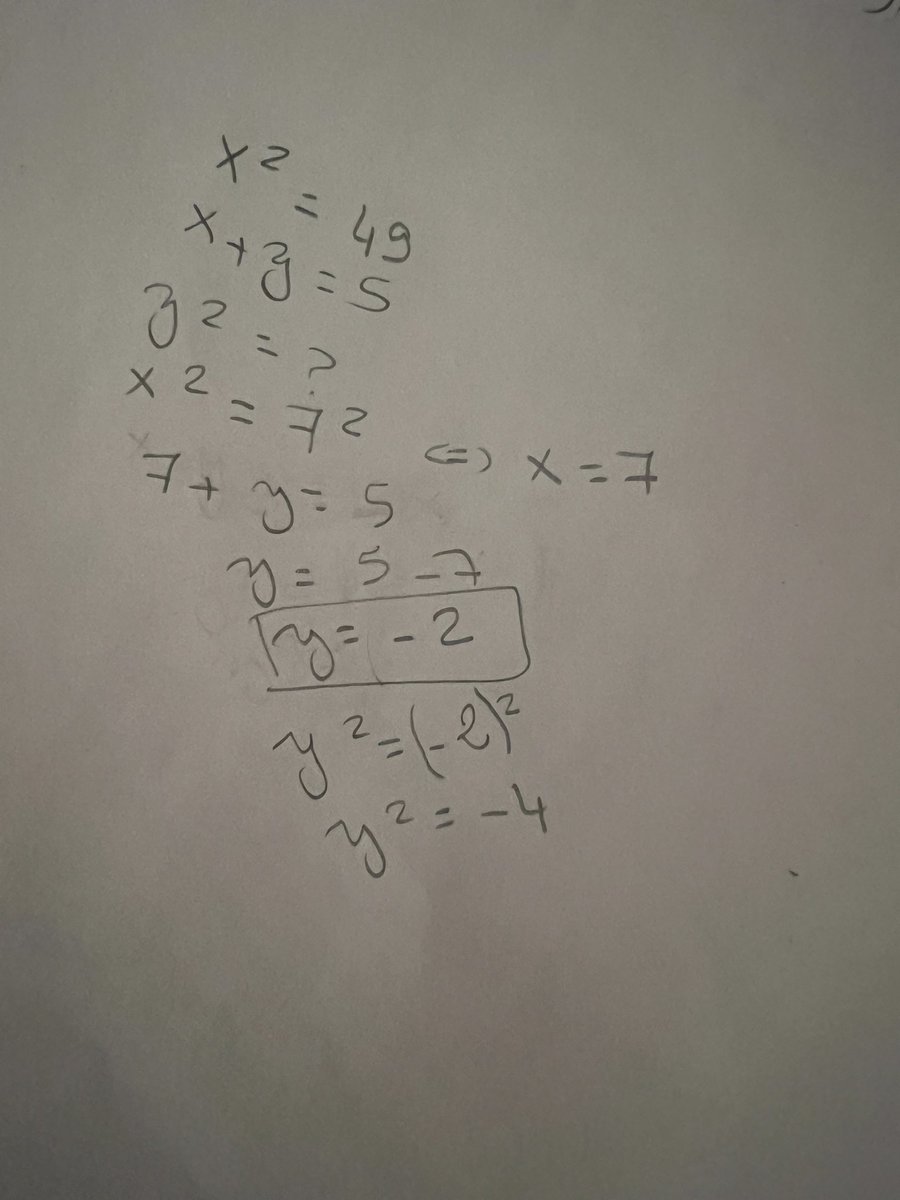 x² = 49
x + y = 5
y² = ?
x² = 7² <=> x = 7
7 + y = 5
y = 5 - 7
y = - 2
y² = (-2)²
y² = -4